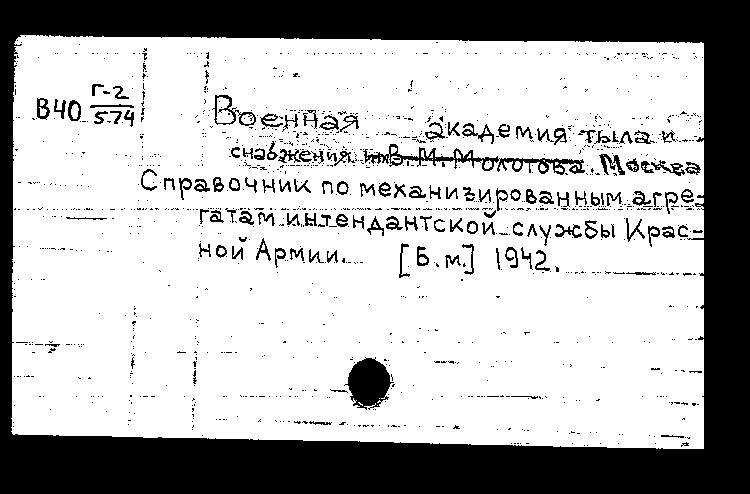 В40 Г-2/574
Военная академия тыла и
снабжения им В. М. Молотова. Москва
Справочник по механизированным агре-
гатам интендантской службы Крас-
ной Армии. [Б.м.] 1942.